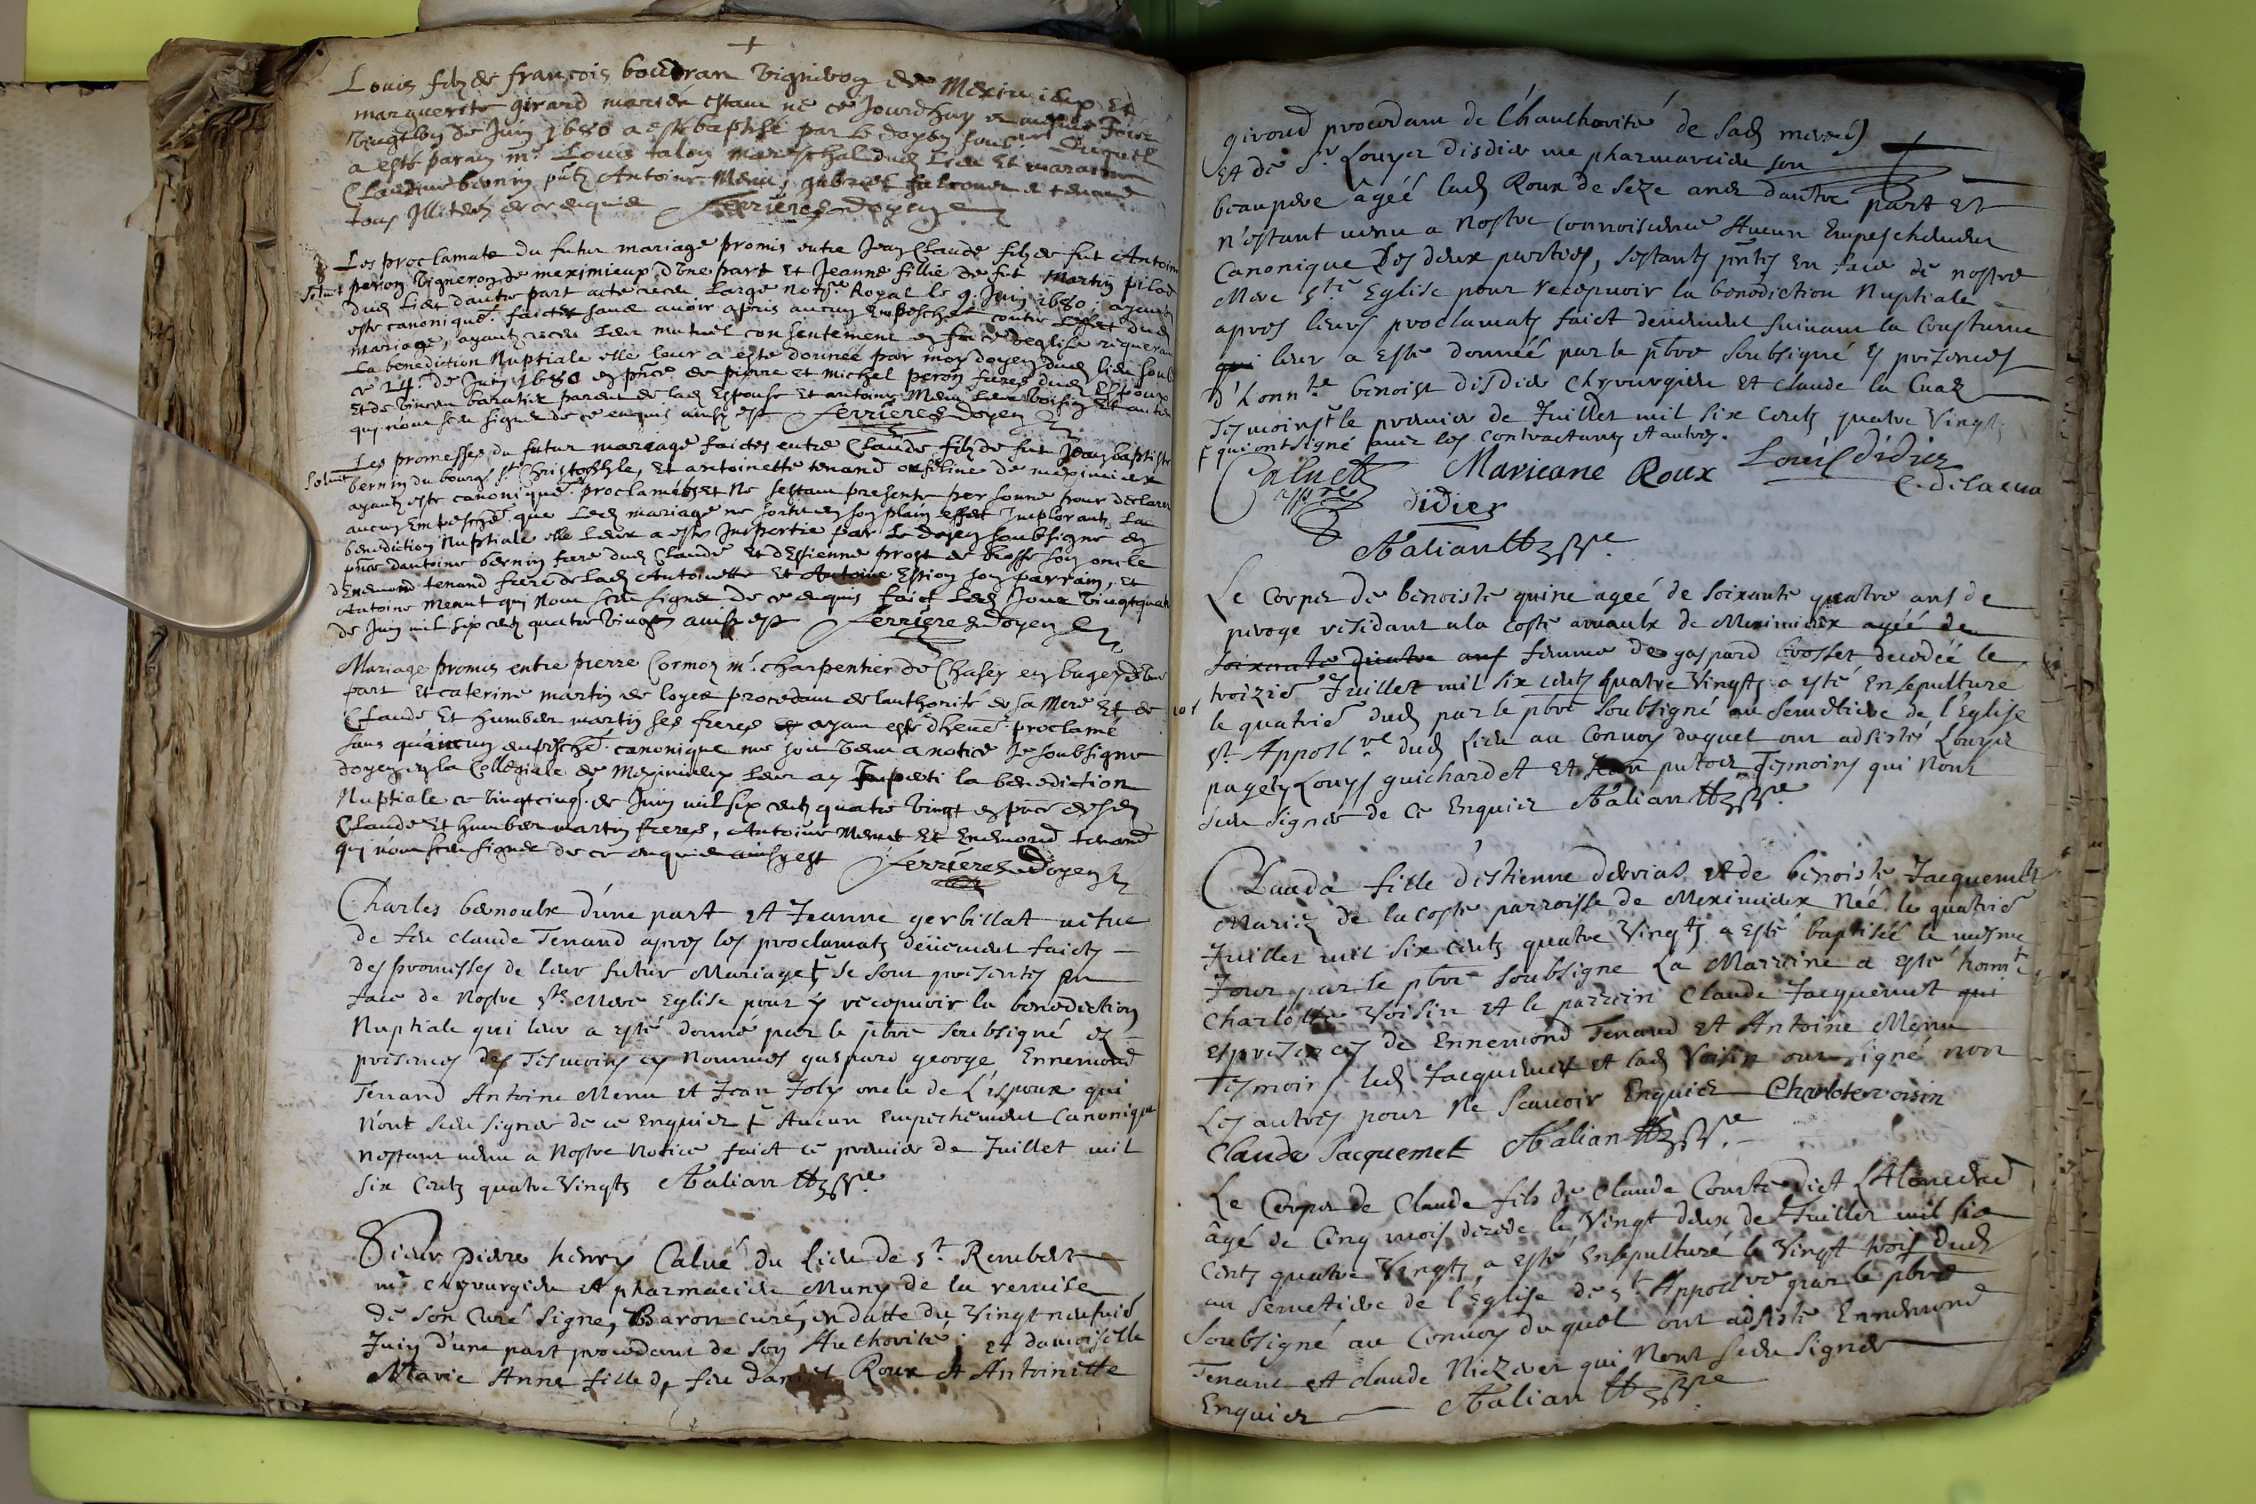 Louis filz de françois boudran vigneron de Meximieux et
marguerite girard mariés estant né ce jourdhuy
de Juin 1680 a esté baptisé par le doyen soubs.
a esté parain mr Louis talon mareschal dud. lieu et maraine
Claudine bernin pntz Antoine Menu, gabriel et tenand
tous illiterez de ce enquis ferrieres doyen
Les proclamats du futur mariage promis entre Jean Claude filz de fut Antoine
solvit peron vigneron de meximieux d'une part et Jeanne fillie de fut Martin pilod
dud. lieu d'autre part acte receu Large notre Royal le 9. Juin 1680. ayants
esté canoniquet. faictes sans avoir apris aucun empeschet contre l'effet dud.
mariage, ayants receu leur mutuel consentement en face d'eglise
La benediction Nuptiale elle leur a esté donnée par moy doyen dud. lieu soubs.
ce 24. de Juin 1680 en pnce de pierre et michel peron freres dud. Espoux
et de vincen parent de lad. Espouse et antoine Menu leur voisin et autres
qui n'ont sceu signer de ce enquis ainsy est ferrieres doyen
Les promesses du futur mariage faictes entre Claude filz de fut Jean baptiste
solvit bernin du bourg st Christophle, et antoinette tenand orfeline de meximieux
ayants esté canoniquet. proclamées et ne sestant presenté personne pour declarer
aucun empeschet. que led. mariage ne sortit en son plain effect Implorants La
benediction Nuptiale elle leur a esté Impertie par le doyen soubsigné en
pnce d'antoine bernin frere dud. Claude et d'Estienne prost de brosse son oncle
d'Enemond tenand frere de lad. Antoinette et Antoine Estion son parrain, et
Antoine Menut qui n'ont sceu signer de ce enquis faict led. Jour vingtquatre
de Juin mil six centz quatre vingtz ainsy est ferrieres doyen
Mariage promis entre pierre Cormon mr. charpentier de Chasey en bugey d'une
part et caterine martin de loyes procedant de lauthorité de sa Mere et de
Claude et humbert martin ses freres ayant esté dheuet. proclamé
sans qu'aucun empeschet. canonique me soit venu a notice Je soubsigné
doyen en la Collegiale de Meximieux leur ay Imparti la benediction
Nuptiale ce vingtcinq. de Juin mil six centz quatre vingt en pnce desd.
Claude et humbert martin freres, Antoine Menut et Enemond tenand
qui n'ont sceu signer de ce enquis ainsy est ferrieres doyen
Charles bernoulx d'une part et Jeanne gerbillat vefve
de feu claude Tenand apres les proclamatz deüement faicts
des promesses de leur futur Mariage se sont presentés en
face de Nostre ste Mere Eglise pour y recepvoir la benediction
Nuptiale qui leur a esté donné par le pbre soubsigné es
presences des Tesmoins cy Nommes gaspard george Ennemond
Tenand Antoine Menu et Jean Joly oncle de L'espoux qui
n'ont sceu signer de ce enquier Aucun empeschement Canonique
n'estant venu a Nostre Notice faict ce premier de Juillet mil
six Centz quatre Vingtz
Sieur Pierre henry Calué du Lieu de st. Rembert
mre chyrurgien et pharmacien Muny de la remise
de son Curé Signé, Baron curé, en datte du Vingt neufuie
Juin d'une part procedant de son Authorité, et damoiselle
Marie Anne fille de feu Daniel Roux et Antoinette
giroud procedant de l'hauthorité de sad. mere
et de Sr Louys disdier me pharmacien son
beaupere âgée lad. Roux de seze ans d'autre part et
n'estant venu a Nostre Connoissance Aucun Empeschement
Canonique des deux parties, sestants pntés en face de nostre
Mere Ste Eglise pour recepvoir la benediction Nuptiale
apres leurs proclamats faict deuement suivant la Coustume
leur a esté donnéé par le pbre soubsigné es presences
d'honnte benoist disdier chyrurgien et claude la Cuaz
Tesmoins le premier de Juillet mil six Centz quatre Vingtz
qui ont signé avec les contractants et autres.
Caluet Marieane Roux Louis didier
didier C. delacua
Le Corps de benoiste quine ageé de soixante quatre ans de
peroge residant a la coste arnaulx de Meximieux agéé de
soixante quatre ans femme de gaspard brosset decedéé le
troizie Juillet mil six centz quatre Vingtz a esté Ensepulture
le quatrie dud. par le pbre soubsigné au semetiere de l'Eglise
st. Appollre dud. lieu au Convoy duquel ont adsisté Louys
pagety Louys guichardet et Jean putoux Tesmoins qui Nont
sceu signer de ce Enquier
Clauda fille d'Estienne dervias et de benoiste Jacquemet
Mariez de la Coste parroisse de Meximieux Néé le quatrie
Juillet mil six centz quatre Vingtz a esté baptisée le mesme
Jour par le pbre soubsigne La Marrine a esté honnte
Charlotte Voisin et le parrein Claude Jacquemet qui
es presences de Ennemond Tenand et Antoine Menu
Tesmoins led. Jacquemet et lad. Voisin ont signé non
Les autres pour ne scauoir Enquier Charlotte voisin
Claude Jacquemet
Le Corps de Claude fils de Claude Courte dict
âgé de Cinq mois decede le Vingt deux de Juillet mil six
Centz quatre Vingtz a esté Ensepulturé le Vingt trois dud.
au semetiere de l'Eglise de st Appollre par le pbre
soubsigné au Convoy duquel ont adsisté Ennemond
Tenand et claude Niezeret qui Nont sceu signer
Enquier